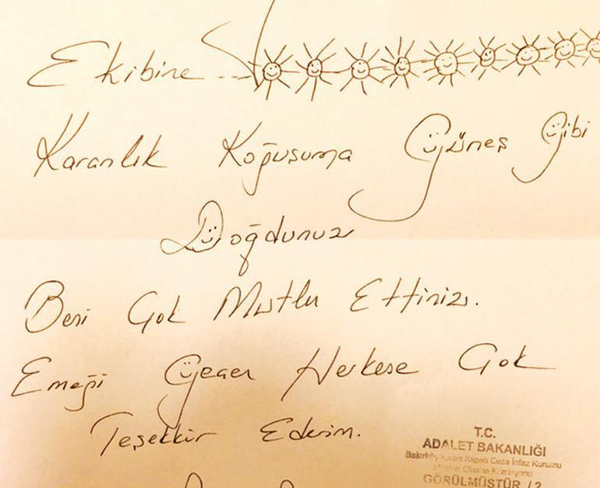 Ekibine
Karanlık Koğuşuma Güneş Gibi
Doğdunuz
Beni Çok Mutlu Ettiniz.
Emeği Geçen Herkese Çok
Teşekkür Ederim.
T.C.
ADALET BAKANLIĞI
Bakırköy Kadın Kapalı Ceza İnfaz Kurumu
Mektup Okuma Komisyonu
GÖRÜLMÜŞTÜR / 2